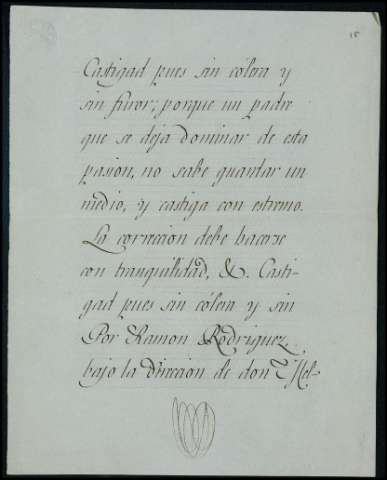 15
Castigad pues sin cólera y
sin furor; porque un padre
que se deja dominar de esta
pasion, no sabe guardar un
medio, y castiga con estremo.
La correcion debe hacerse
con tranquilidad, &. Casti-
gad pues sin cólera y sin
Por Ramon Rodriguez
bajo la Direcion de don